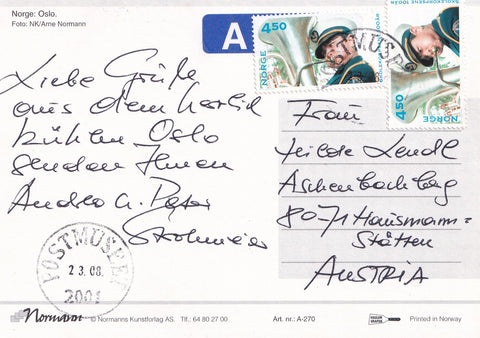 Norge: Oslo.
Foto: NK/Arne Normann
A
4.50
NORGE
4.50
NORGE
POSTMUSE
Liebe Grüße
aus dem herbstl
kühlen Oslo
senden Ihnen
Andrea u. Peter
Strohmeier
Frau
Aschenbachbg
8071 Hausmann=
Stätten
AUSTRIA
POSTMUSEET
23.08.
2001
Normann © Normanns Kunstforlag AS. Tlf.: 64 80 27 00
Art. nr.: A-270
Printed in Norway